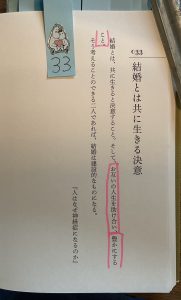 33
33
結婚とは共に生きる決意
結婚とは、共に生きると決意すること。そして、お互いの人生を助け合い、豊かにする
こと。
そう考えることのできる二人であれば、結婚は建設的なものになる。
『人はなぜ神経症になるのか』